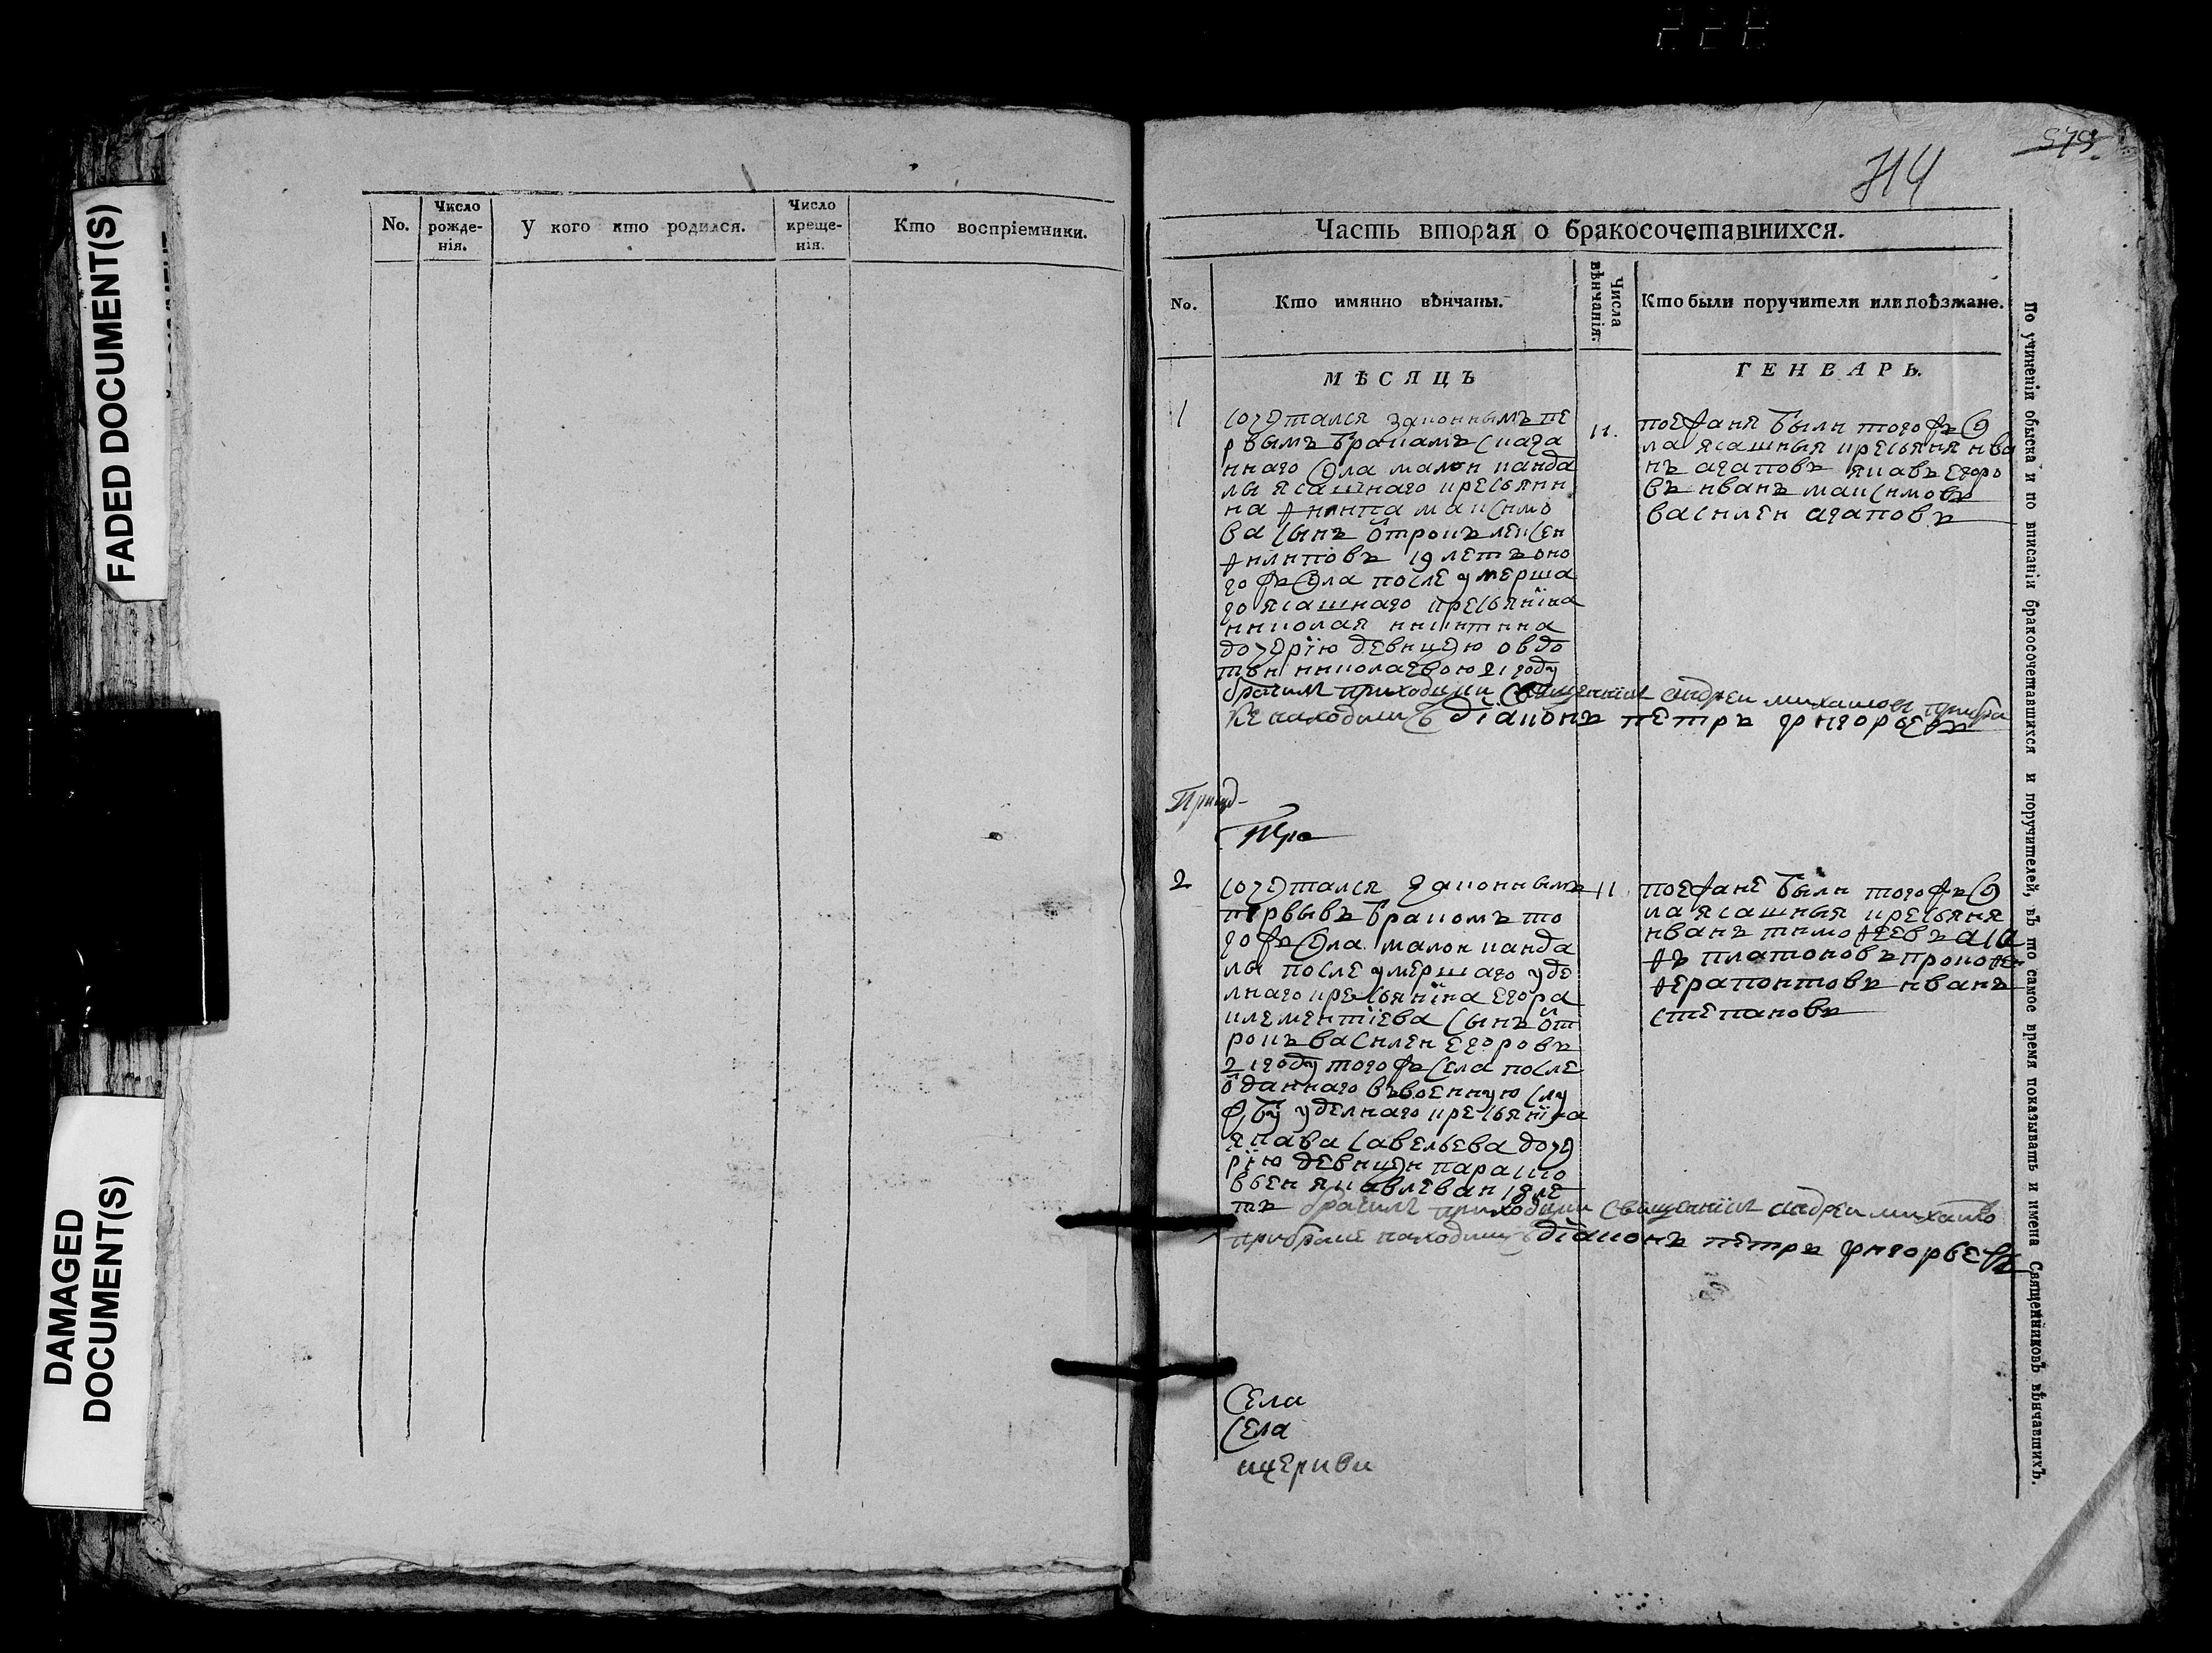 FADED DOCUMENT(S)
DAMAGED
DOCUMENT(S)
No.
Число
рожде-
нія.
У кого кто родился.
Число
креще-
нія.
Кто воспріемники.
579
714
Часть вторая о бракосочетавшихся.
No.
Кто имянно вѣнчаны.
Числа
вѣнчанія.
Кто были поручители или поѣзжане.
МѢСЯЦЪ
ГЕНВАРЬ.
1
сочетался законнымъ пе
рвымъ бракамъ сказа
ннаго села малои канда
лы ясашнаго кресьяни
на филипа максимо
ва сынъ отрокъ
филиповъ 19 летъ оно
го жъ села после умерша
го ясашнаго кресьянїна
николая никитина
дочерїю девицею овдо
тьи николаевою 21 году
бракомъ приходски священникъ андреи михаиловъ прибра
ке находился діаконъ петръ григорьевъ
11.
поежаня были того жъ се
ла ясашныя кресьяня ива
нъ агаповъ яковъ егоро
въ иванъ максимовъ
василеи агаповъ
2
сочетался законнымъ
первывъ бракомъ то
го жъ села малои канда
лы после умершаго уде
лнаго кресьянїна егора
клементїева сынъ от
рокъ василеи егоровъ
21 году того жъ села после
оданнаго въ военную слу
жбу уделнаго кресьянїна
якава савельева доче
рїю девицеи параско
вьеи яковлеваи 18 ле
тъ приходски священникъ андреи михаило
прибраке находился діаконъ петръ григорьевъ
11.
поежане были того жъ се
ла ясашныя кресьяня
иванъ тимофеевъ
платоновъ
ферапонтовъ иванъ
степановъ
Села
Села
церкви
По учиненіи обыска и по вписаніи бракосочетавшихся и поручителей, въ то самое время показывать и имена Священниковъ вѣнчавшихъ.